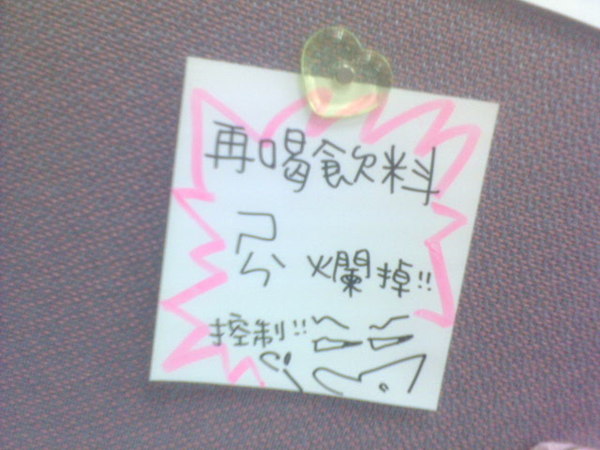 再喝飲料
ㄕㄣˋ 爛掉!!
控制!!